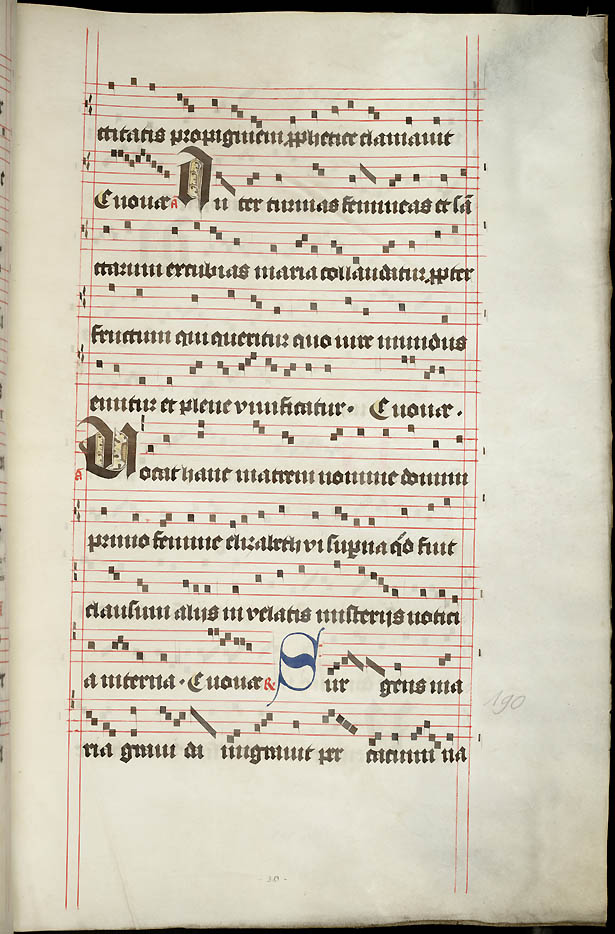 ctitatis propiginem ꝓphetice clamavit
Euouae A Inter turmas femineas et sā
ctarum excubias maria collauditur ꝓpter
fructum qui queritur quo iure mundus
emitur et plene viuificatur. Euouae.
A Vocat hanc matrem nomine domini
primo femine elizabeth vi suꝑna qd̄ fuit
clausum alijs in velatis misterijs notici
a interna. Euouae R Surgens ma
ria graui di migrauit per cacumina
190
- 30 -